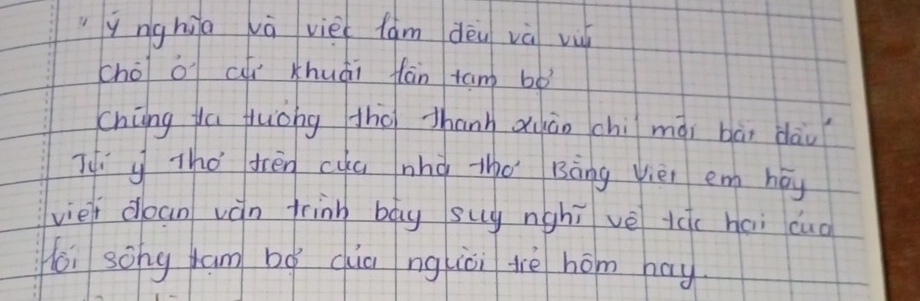 "Ý nghĩa và việc làm đều vá víu
Chỗ ở cứ khuất lần tạm bợ
Chúng ta tưởng thời thanh xuân chỉ mới bắt đầu"
Từ ý thơ trên của nhà thơ Bằng Việt em hãy
viết đoạn văn trình bày suy nghĩ về tác hại của
lối sống tạm bợ của người trẻ hôm nay.